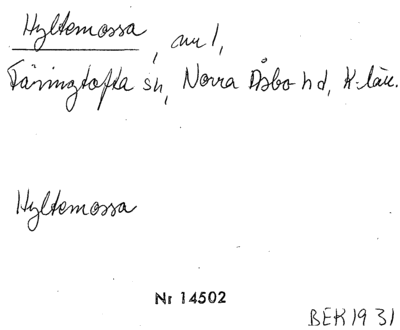 Hyltemossa, nr 1,
Färingtofta sn, Norra Åsbo hd, K-län.
Hyltemossa
Nr 14502
BEK 1931